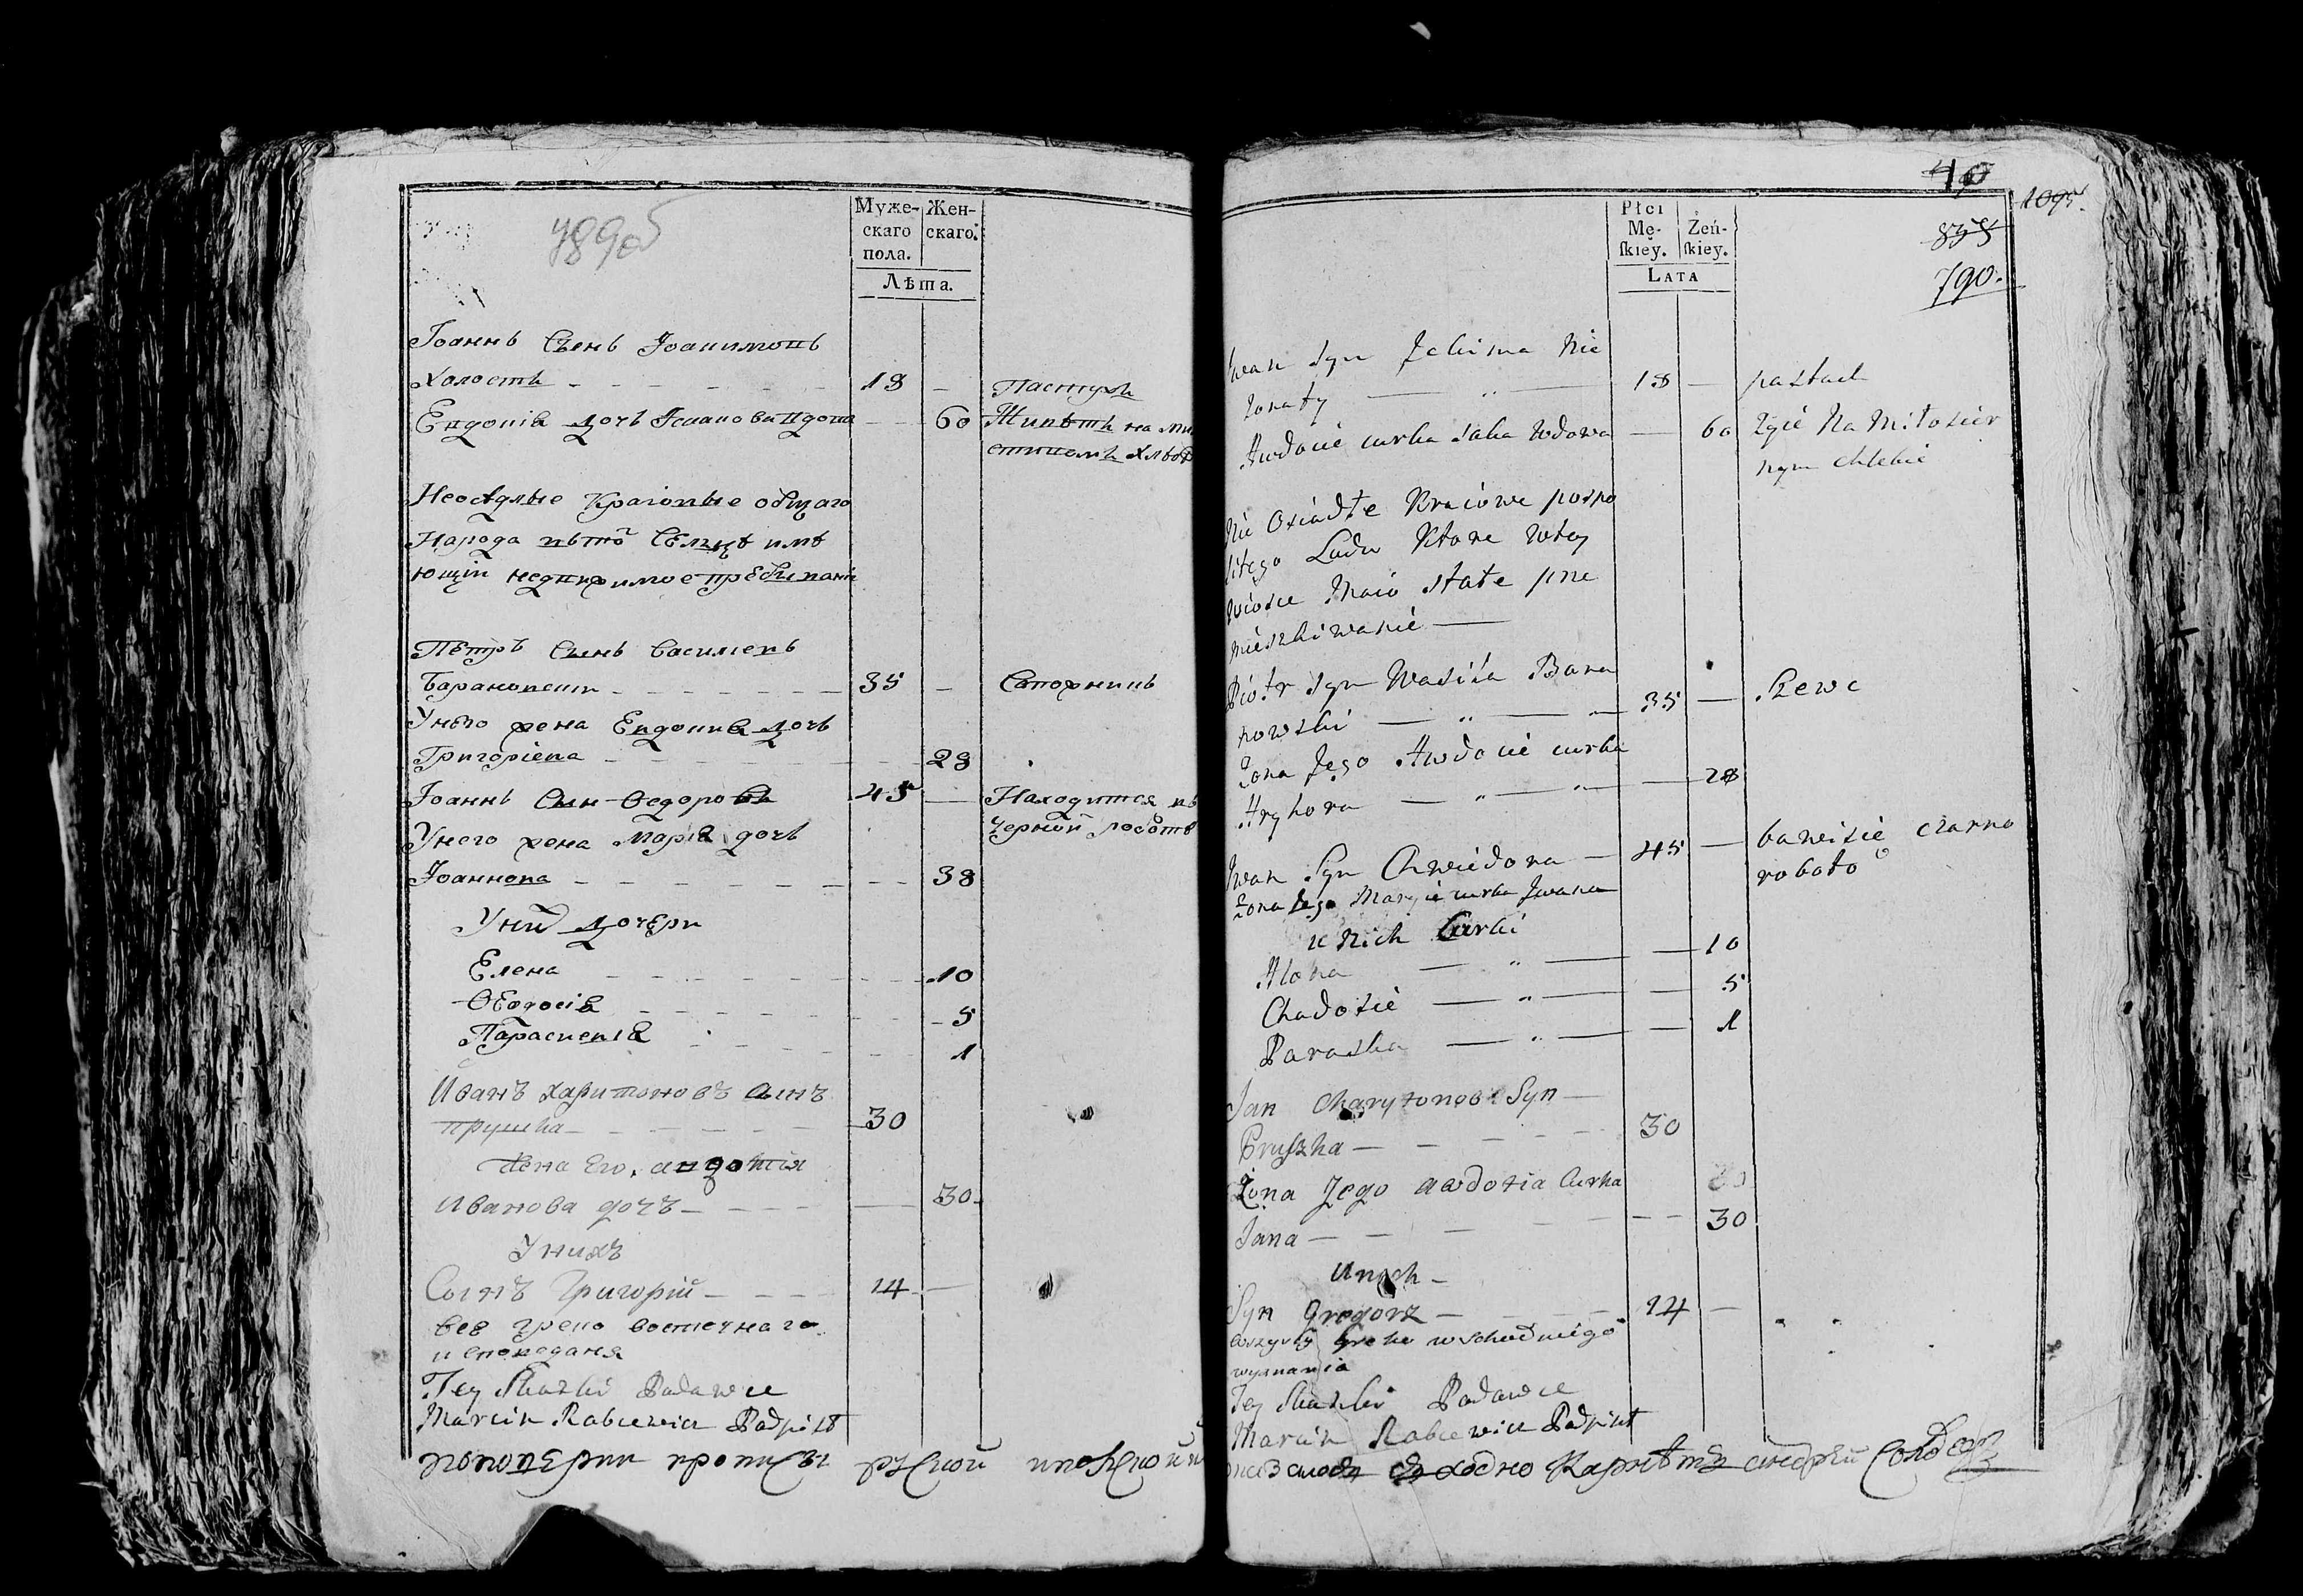 789об
Муже-
скаго
пола.
Жен-
скаго.
Лѣта.
Іоаннъ Сынъ Іоакимовъ
Холостъ - - - - - - 18 - Пастухъ
Евдокіа дочь Ісакова вдова - 60 Живетъ на ми
лостиномъ хлѣбѣ
Неосѣдлые Краіовые общаго
Народа въ той Сельцѣ имѣ
ющіи недвижимое пребываніе
Петръ Сынъ Василевъ
Барановски - - - - - - 35 - Сапожникъ
У него жена Евдокиа дочь
Григоріева - - - - - - 28
Іоаннъ Сын Ѳедоровъ 45 - Находится въ
черной роботѣ
У него жена Маріа дочь
Іоаннова - - - - - - 38
У них дочери
Елена - - - - - - 10
Ѳеодосіа - - - - - - 5
Параскевіа - - - - - 1
Иванъ харитоновъ сынъ
прушка - - - - - - 30
жена Его, авдотія
Иванова дочъ - - - - 30
У нихъ
Сынъ Григорій - - - 14 -
всѣ греко восточнаго
исповеданя
Tey Skazki Podawce
Marcin Rabcewicz Podpisał
40
1095.
858
790.
Płci
Mę-
ſkieẏ.
Żeń-
ſkieẏ.
Lata
Iwan Syn Jakima Nie
żonaty — " — 18 — pastuch
Awdocie curka Isaka Wdowa — 60 Żyie Na Miłosier
nym chlebie
Nie Osiadłe Kraiowe pospo
litego Ludu Ktore w tey
wiosce Maio stałe prze
mieszkiwanie —
Piotr Syn Wasila Bara
nowski — " — " — 35 — Szewc
Żona Jego Awdocie curka
Hryhora — " — " — 28
Iwan Syn Chwiedora — 45 — bawi sie czarno
roboto
Żona Jego Maryie curka Iwana
u Nich Curki
Alona — " — — 10
Chadosie — " — — 5
Paraska — " — — 1
Jan Charytonow Syn —
Pruszka — - - - - 30
Żona Jego awdotia Curka
Jana — - - - - 30
U nich -
Syn Gregorz - - - 14 -
wszystkie Greko wschodniego
wyznania
Tey Skazki Podawce
Marcin Rabcewicz Podpisał